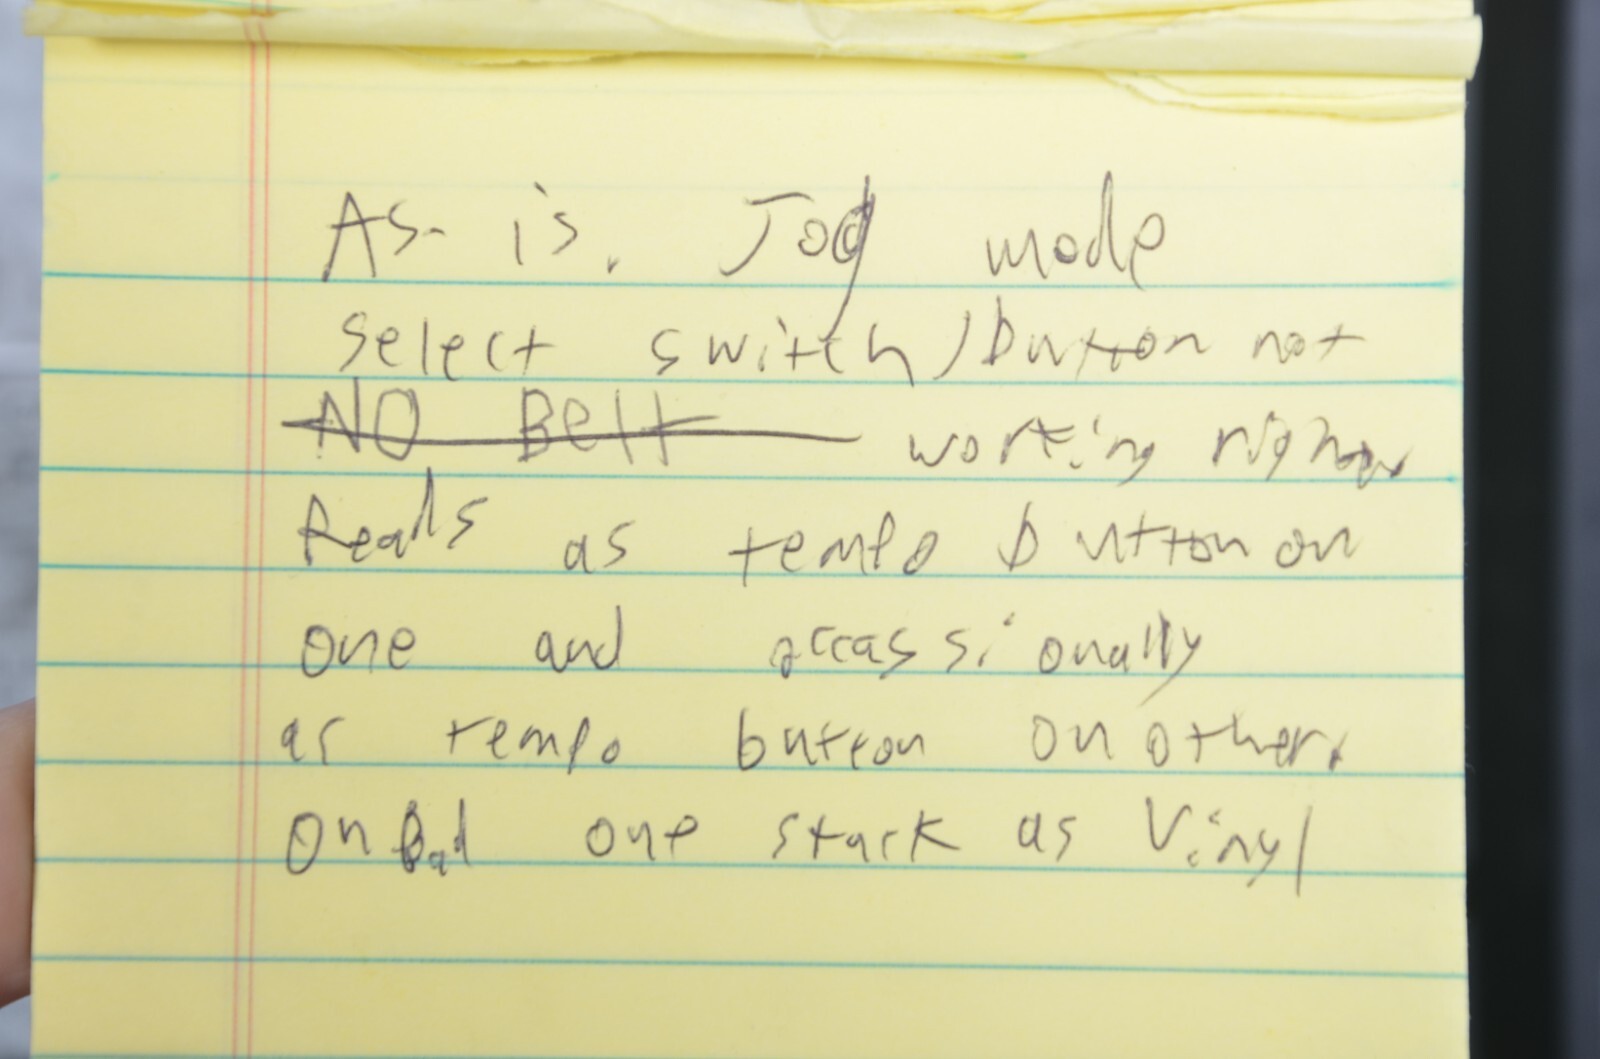 As-is. Jog mode
select switch/button not
NO Belt working right.
Reads as tempo button on
one and occassionally
as tempo button on other.
On Bad one stuck as Vinyl